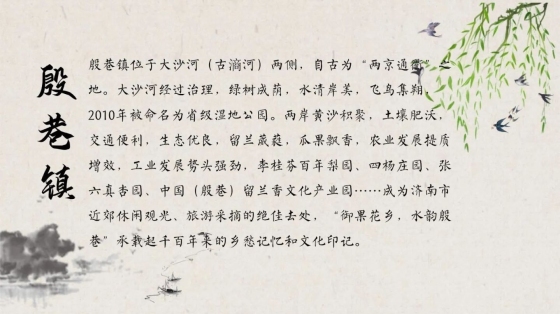 殷巷镇
殷巷镇位于大沙河（古滴河）两侧，自古为“两京通衢”之
地。大沙河经过治理，绿树成荫，水清岸美，飞鸟集翔，
2010年被命名为省级湿地公园。两岸黄沙积聚，土壤肥沃，
交通便利，生态优良，留兰葳蕤，瓜果飘香，农业发展提质
增效，工业发展势头强劲，李桂芬百年梨园、四杨庄园、张
六真杏园、中国（殷巷）留兰香文化产业园……成为济南市
近郊休闲观光、旅游采摘的绝佳去处，“御果花乡，水韵殷
巷”承载起千百年来的乡愁记忆和文化印记。